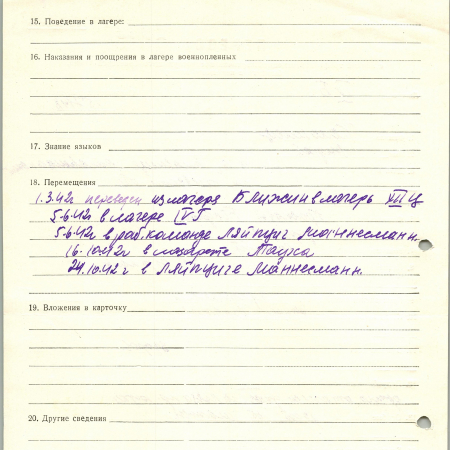 15. Поведение в лагере:
16. Наказания и поощрения в лагере военнопленных
17. Знание языков
18. Перемещения
1.3.42г переведен из лагеря Ближин в лагерь XIII Ц
5.6.42г в лагере IV Г
5.6.42г в раб команде Ляйпциг Маннесманн.
16.10.42г в лазарете Тауха
24.10.42г в Ляйпциге Маннесманн.
19. Вложения в карточку
20. Другие сведения